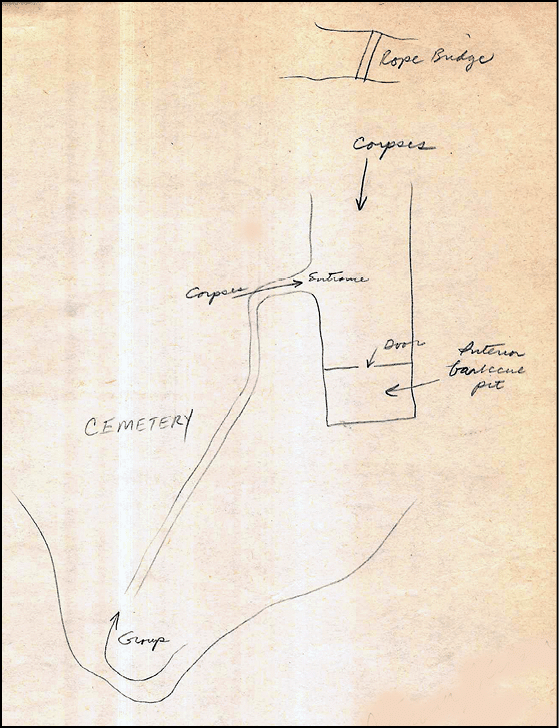 Rope Bridge
Corpses
Corpses
Entrance
Door
Interior
barbecue
pit
CEMETERY
Group